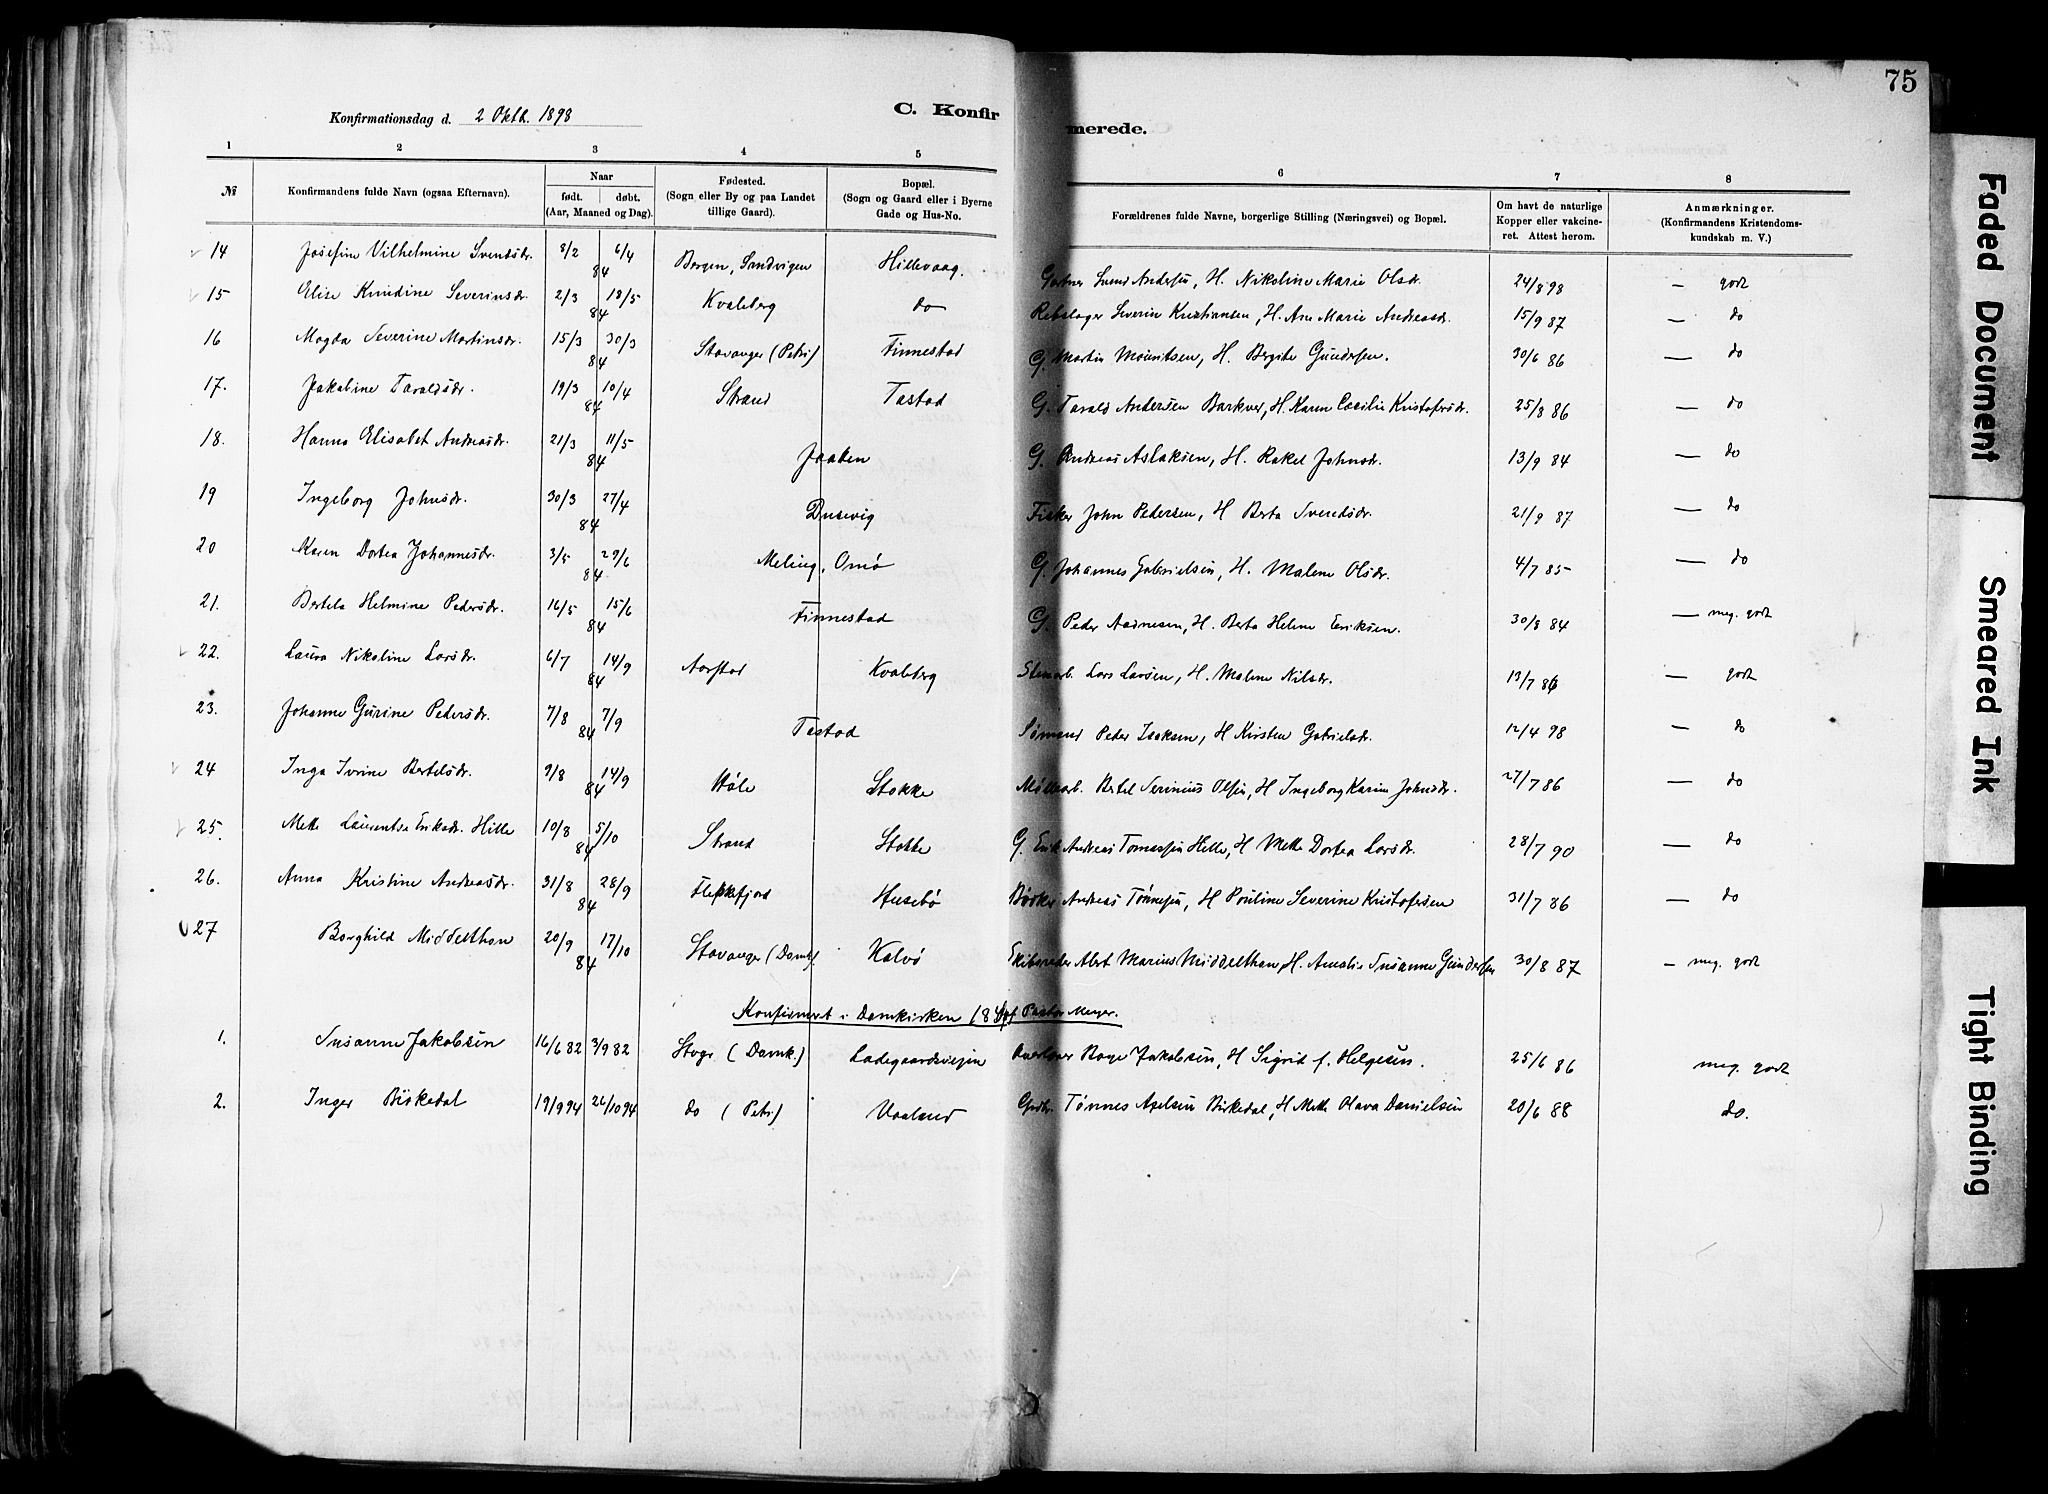 75
Konfirmationsdag d. 2 Oktb. 1898
C. Konfirmerede.
1 2 3 4 5 6 7 8
№ Konfirmandens fulde Navn (ogsaa Efternavn). Naar født. døbt. (Aar, Maaned og Dag). Fødested. (Sogn eller By og paa Landet tillige Gaard). Bopæl. (Sogn og Gaard eller i Byerne Gade og Hus-No. Forældrenes fulde Navne, borgerlige Stilling (Næringsvei) og Bopæl. Om havt de naturlige Kopper eller vakcineret. Attest herom. Anmærkninger. (Konfirmandens Kristendomskundskab m. V.)
14 Josefine Vilhelmine Svendsdr. 8/2 84 6/4 Bergen, Sandvigen Hillevaag. Gartner Svend Andersen, H. Nikoline Marie Olsdr. 24/8 98 — godt
15 Elise Knudine Severinsdr. 2/3 84 18/5 Kvaleberg do Rebslager Severin Kristiansen, H. Ane Marie Andreasdr. 15/9 87 — do
16 Magda Severine Martinsdr. 15/3 84 30/3 Stavanger (Petri) Finnestad G. Martin Mauritsen, H. Bergite Gundersen. 30/6 86 — do
17. Jakobine Taraldsdr. 19/3 84 10/4 Strand Tastad G. Tarald Andersen Barkved, H. Karen Cecilie Kristofersdr. 25/8 86 — do
18. Hanna Elisabet Andreasdr. 21/3 84 11/5 Jaatten G. Andreas Aslaksen, H. Rakel Johnsdr. 13/9 84 — do
19 Ingeborg Johnsdr. 30/3 84 27/4 Dusevig Fisker John Pedersen, H Berta Svendsdr. 21/9 87 — do
20 Karen Dortea Johannesdr. 3/5 84 29/6 Meling, Omø G. Johannes Gabrielsen, H. Malene Olsdr. 4/7 85 — do
21. Bertela Helmine Pedersdr. 16/5 84 15/6 Finnestad G. Peder Aanesen, H. Berta Helene Eriksen. 30/8 84 — meg. godt
22. Laura Nikoline Larsdr. 6/7 84 14/9 Aarstad Kvaleberg Stenarb. Lars Larsen, H. Malene Nilsdr. 13/7 86 — godt
23. Johanne Gurine Pedersdr. 7/8 84 7/9 Tastad Sømand Peder Isaksen, H Kirsten Gabrielsdr. 12/4 98 — do
24 Inga Ivrine Bertelsdr. 9/8 84 14/9 Høle Stokke Møllearb. Bertel Serinius Olsen, H Ingeborg Karine Johnsdr. 27/7 86 — do
25. Mette Laurentse Eriksdr. Hille 10/8 84 5/10 Strand Stokke G. Erik Andreas Tomassen Helle, H Mette Dortea Larsdr. 28/7 90 — do
26. Anna Kristine Andreasdr. 31/8 84 28/9 Flekkefjord Husebø Bødker Andreas Tønnesen, H Pauline Severine Kristofersen 31/7 86 — do
27 Borghild Middelthon 20/9 84 17/10 Stavanger (Domk). Kalvø Skibsreder Alert Marius Middelthon, H. Amalie Susanne Gundersen 30/8 87 — meg. godt
Konfirmeret i Domkirken af Pastor Meyer.
1. Susanne Jakobsen 16/6 82 3/9 82 Stvgr. (Domk.) Ladegaardsveien Jakobsen, H Sigrid f. Helgesen. 25/6 86 meg. godt
2. Inger Birkedal 19/9 94 26/10 94 do (Petri) Vaaland Tønnes Axelsen Birkedal, H Mette Olava Danielsen 20/6 88 do.
Faded Document
Smeared Ink
Tight Binding